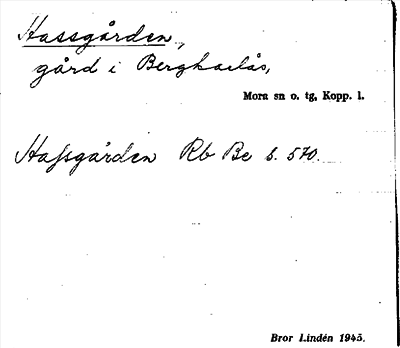 Hassgården,
gård i Bergkarlås,
Mora sn o. tg, Kopp. l.
Hassgården Rb Be s. 570.
Bror Lindén 1945.